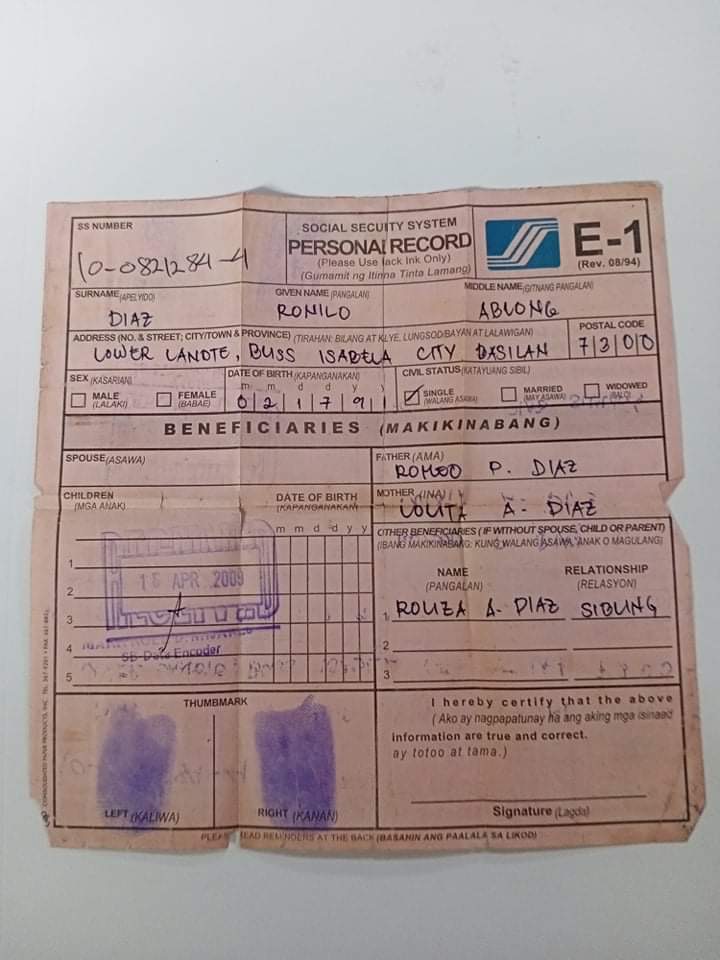 SS NUMBER
10-0821284-4
SOCIAL SECURITY SYSTEM
PERSONAL RECORD
(Please Use lack Ink Only)
(Gumamit ng Itinna Tinta Lamang)
E-1
(Rev. 08/94)
SURNAME (APELYIDO)
GIVEN NAME (PANGALAN)
MIDDLE NAME (GITNANG PANGALAN)
DIAZ RONILO ABLONG
ADDRESS (NO. & STREET; CITY/TOWN & PROVINCE) (TIRAHAN: BILANG AT KLYE, LUNGSOD/BAYAN AT LALAWIGAN)
POSTAL CODE
LOWER LANOTE, BLISS ISABELA CITY BASILAN
7300
SEX (KASARIAN)
MALE
(LALAKI)
FEMALE
(BABAE)
DATE OF BIRTH (KAPANGANAKAN)
m m d d y y
0 2 1 7 9 1
CIVIL STATUS (KATAYUANG SIBIL)
SINGLE
(WALANG ASAWA)
MARRIED
(MAY ASAWA)
WIDOWED
(BALO)
BENEFICIARIES (MAKIKINABANG)
SPOUSE (ASAWA)
FATHER (AMA)
ROMEO P. DIAZ
MOTHER (INA)
LOLITA A. DIAZ
CHILDREN
(MGA ANAK)
DATE OF BIRTH
(KAPANGANAKAN)
m m d d y y
1
2
3
4
5
15 APR 2009
SB-Data Encoder
OTHER BENEFICIARIES (IF WITHOUT SPOUSE, CHILD OR PARENT)
(IBANG MAKIKINABANG: KUNG WALANG ASAWA, ANAK O MAGULANG)
NAME
(PANGALAN)
RELATIONSHIP
(RELASYON)
1 ROLIZA A. DIAZ SIBLING
2
3
THUMBMARK
LEFT (KALIWA)
RIGHT (KANAN)
I hereby certify that the above
(Ako ay nagpapatunay na ang aking mga isinaad
information are true and correct.
ay totoo at tama.)
Signature (Lagda)
PLEASE READ REMINDERS AT THE BACK (BASAHIN ANG PAALALA SA LIKOD)